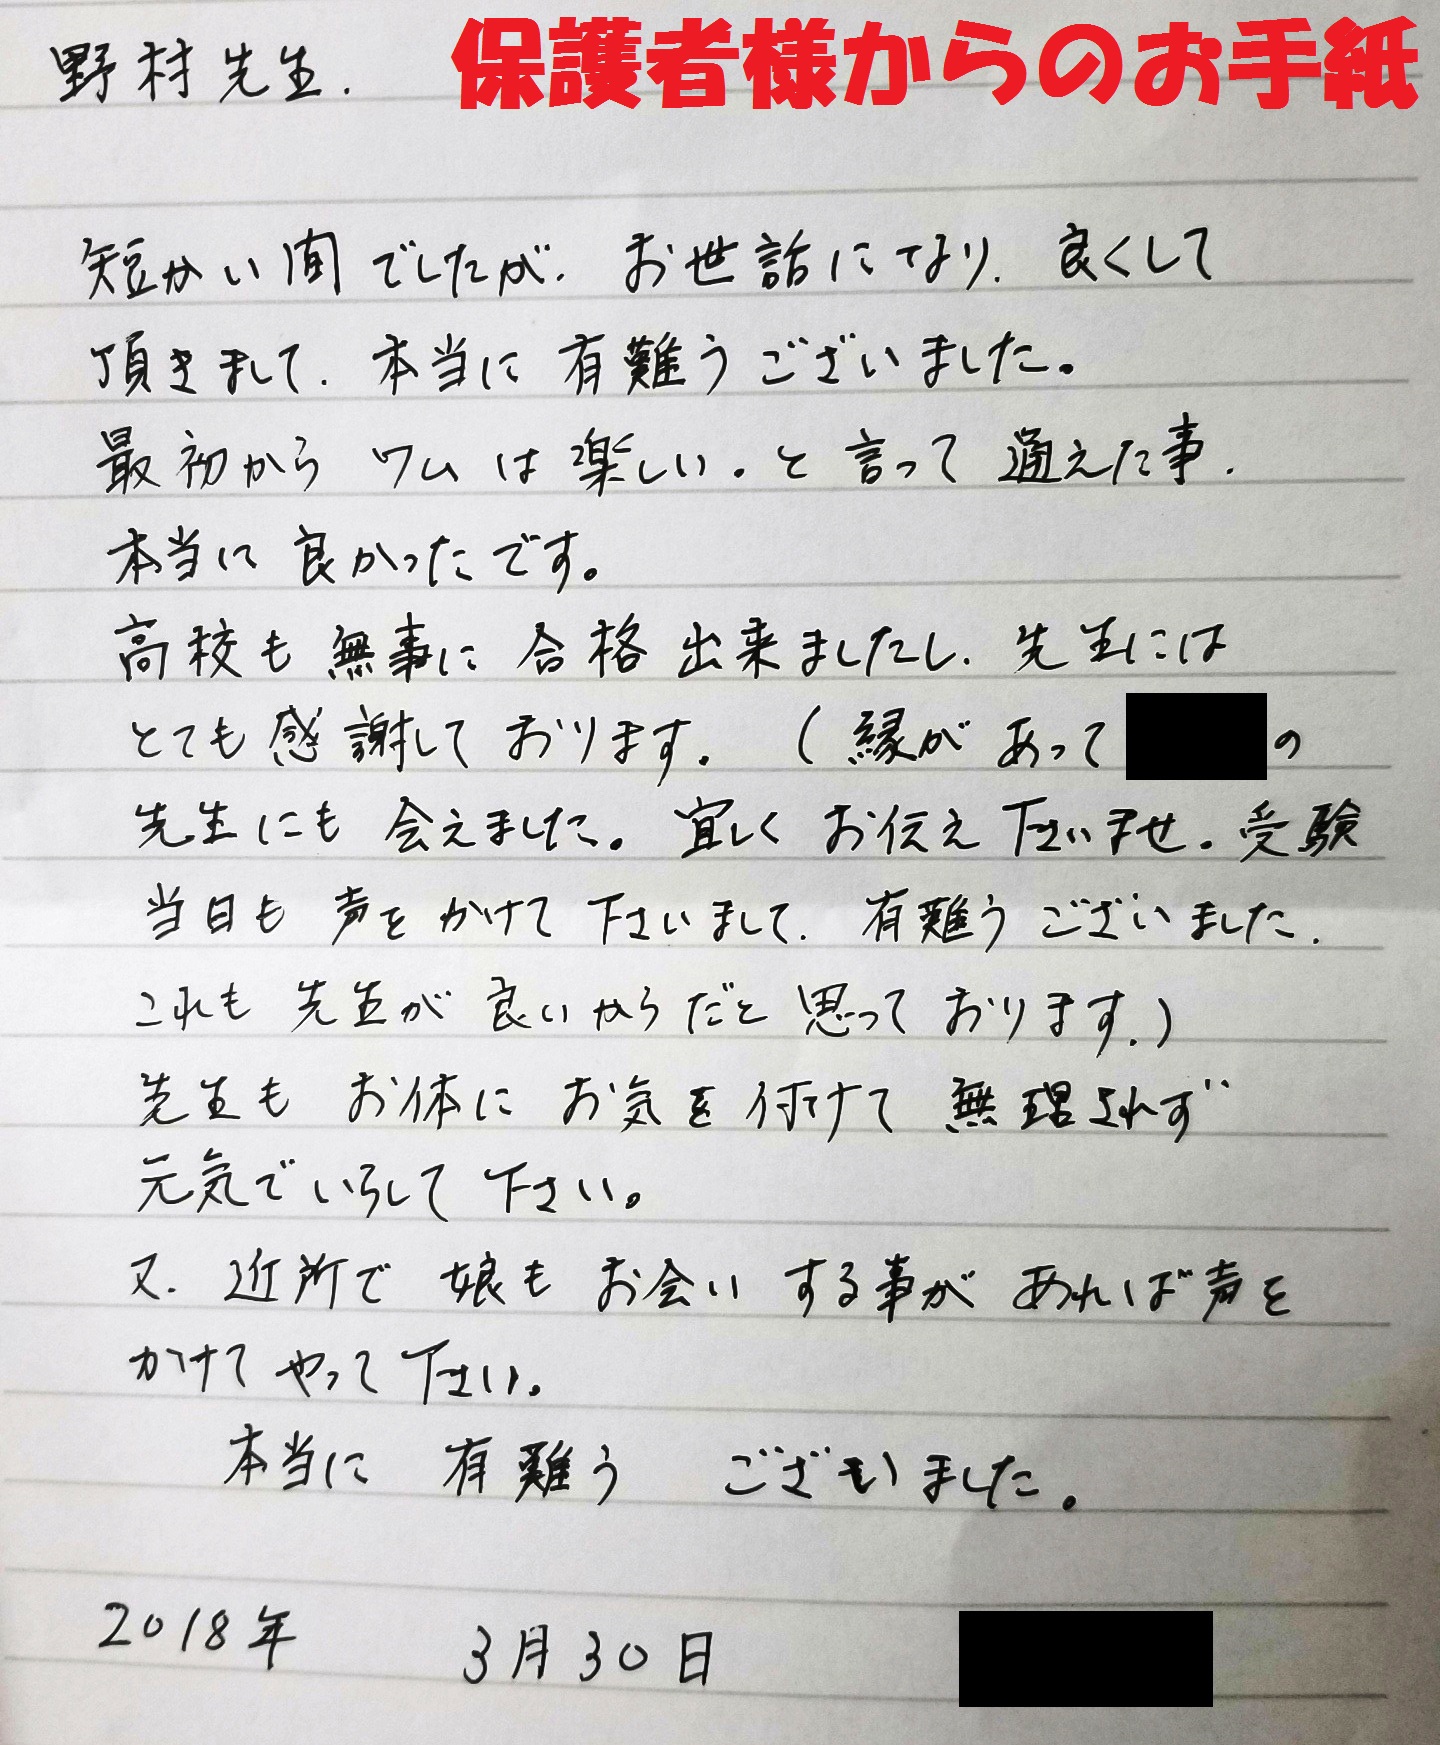 保護者様からのお手紙
野村先生.
短かい間でしたが、お世話になり、良くして
頂きまして、本当に有難うございました。
最初からワムは楽しい。と言って通えた事、
本当に良かったです。
高校も無事に合格出来ましたし、先生には
とても感謝しております。(縁があって の
先生にも会えました。宜しくお伝え下さいませ。受験
当日も声をかけて下さいまして、有難うございました、
これも先生が良いからだと思っております.)
先生もお体にお気を付けて無理されず
元気でいらして下さい。
又、近所で娘もお会いする事があれば声を
かけてやって下さい。
本当に有難うございました。
2018年 3月30日